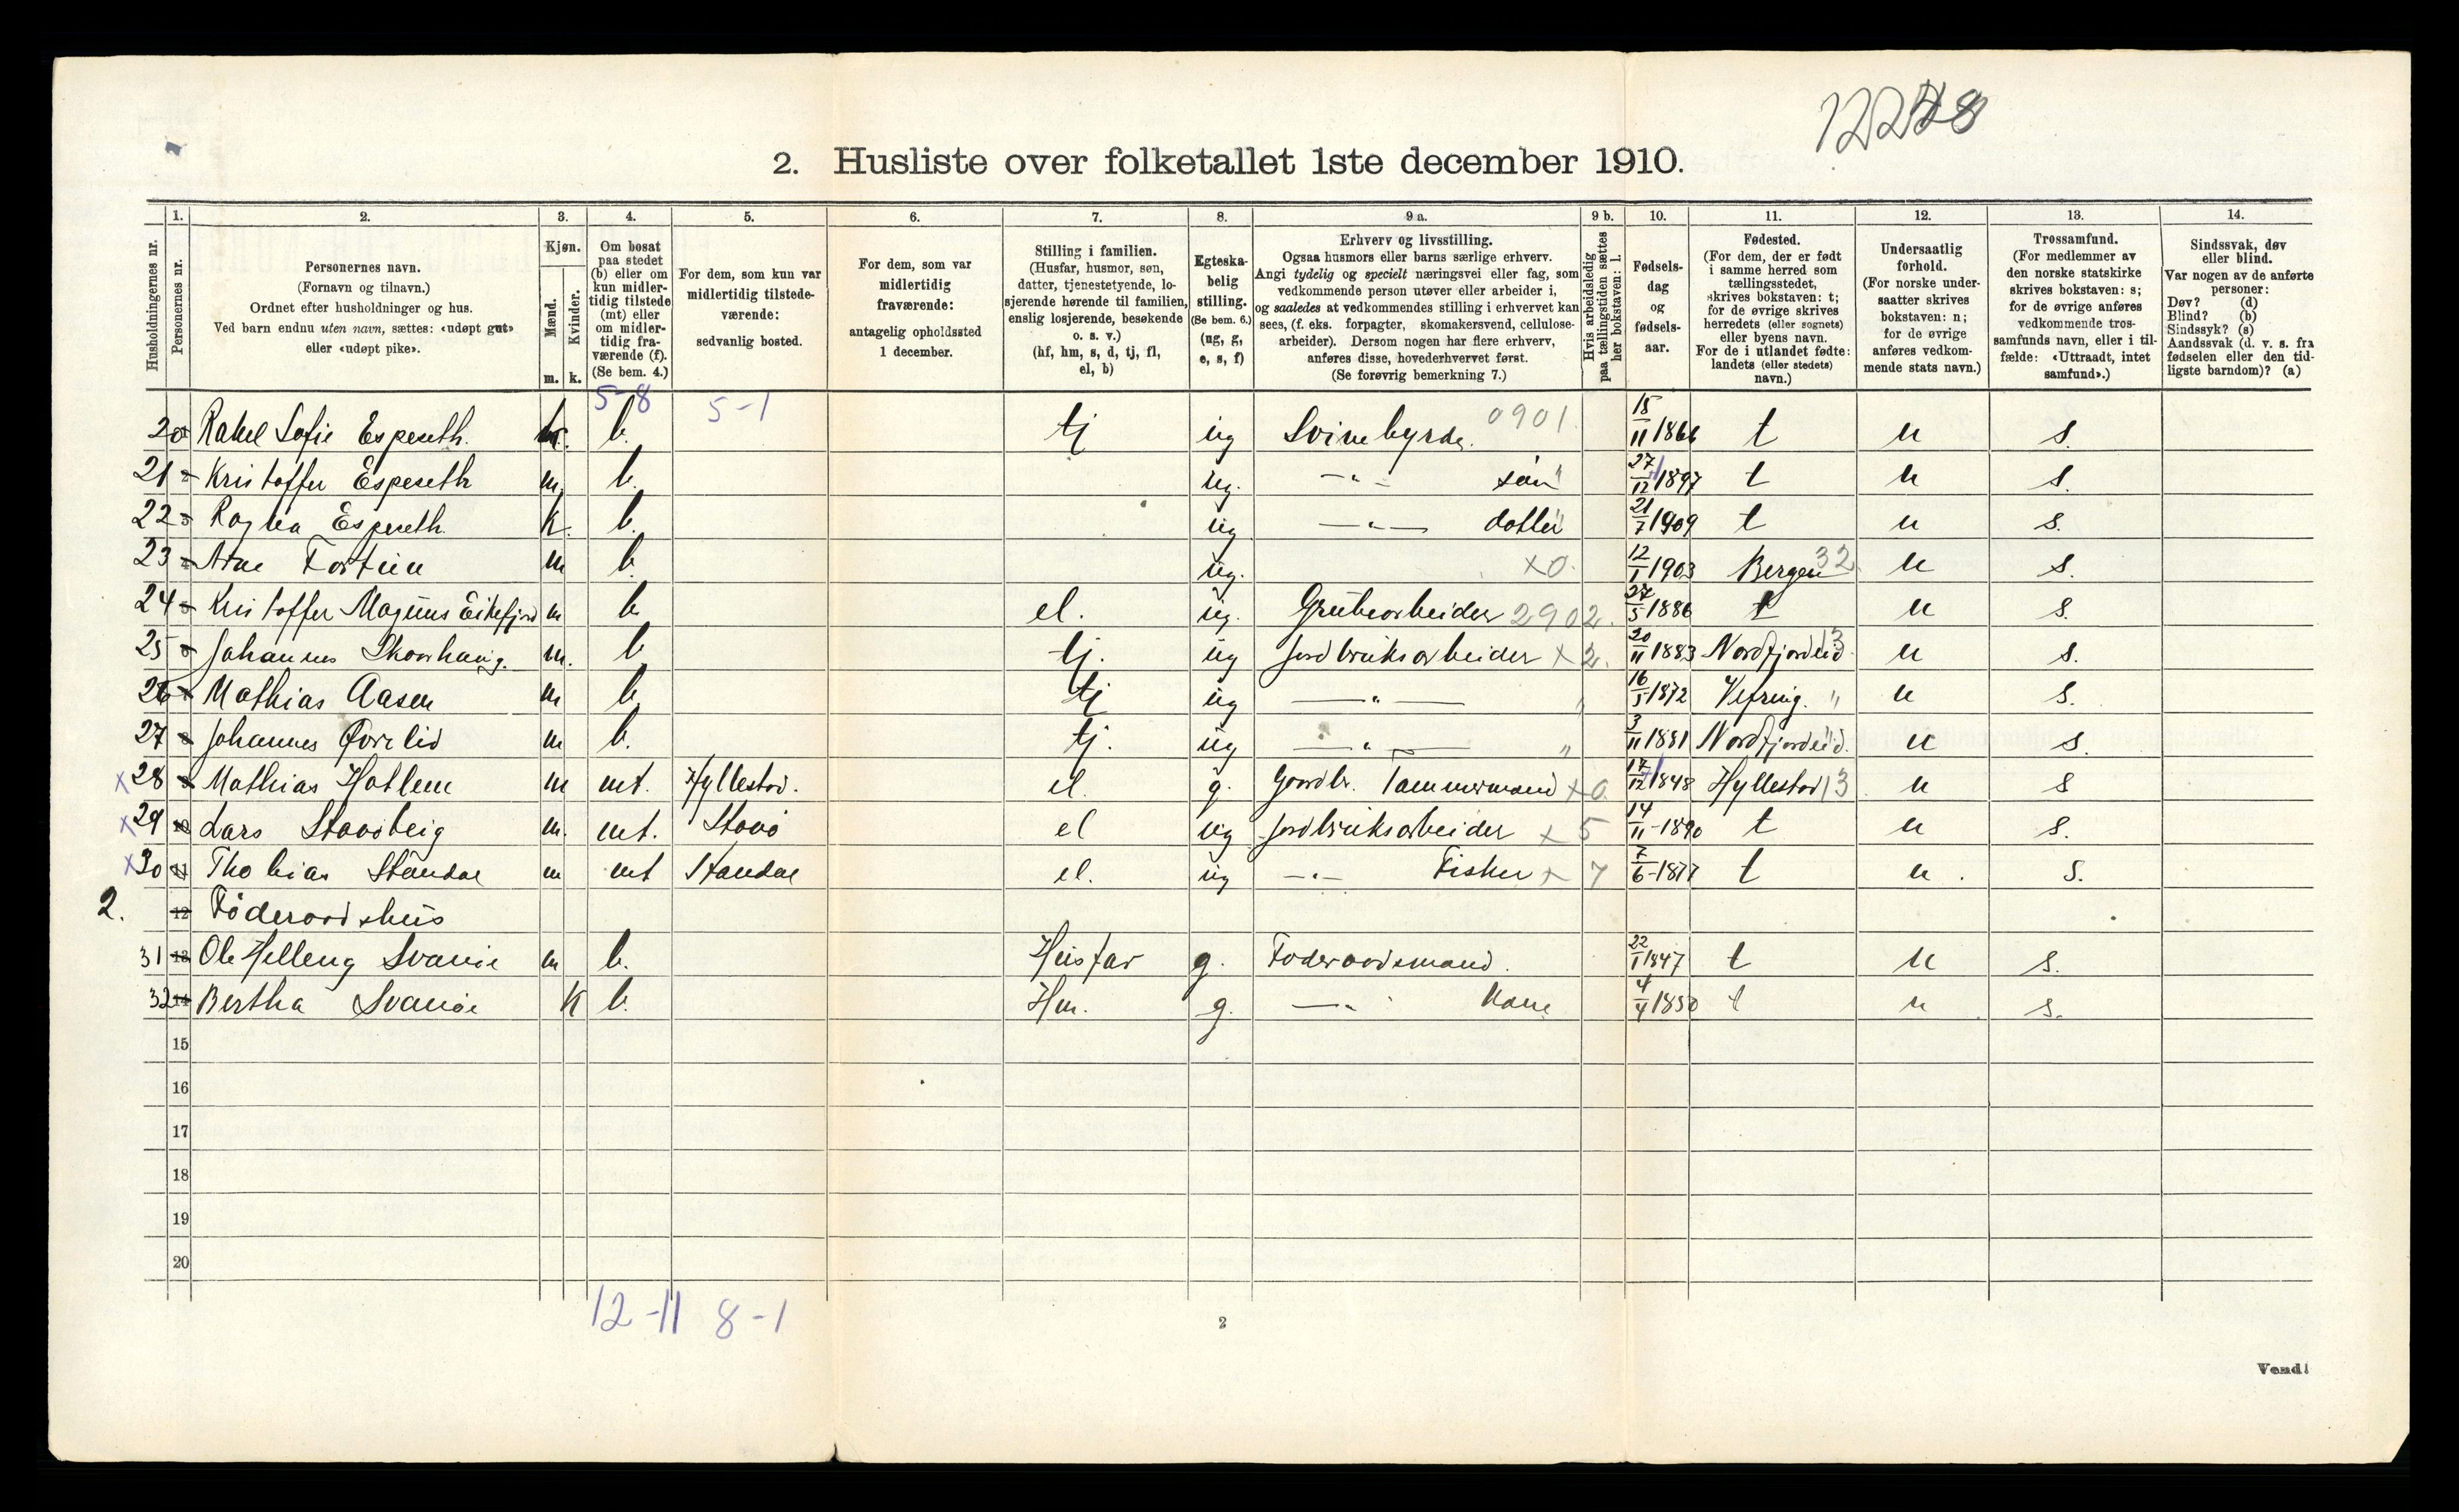 2. Husliste over folketallet 1ste december 1910.
1. 2. 3. 4. 5. 6. 7. 8. 9 a. 9 b. 10. 11. 12. 13. 14.
Husholdningernes nr.
Personernes nr.
Personernes navn.
(Fornavn og tilnavn.)
Ordnet efter husholdninger og hus.
Ved barn endnu uten navn, sættes: «udøpt gut»
eller «udøpt pike».
Kjøn.
Mænd.
Kvinder.
m. k.
Om bosat
paa stedet
(b) eller om
kun midler-
tidig tilstede
(mt) eller
om midler-
tidig fra-
værende (f).
(Se bem. 4.)
For dem, som kun var
midlertidig tilstede-
værende:
sedvanlig bosted.
For dem, som var
midlertidig
fraværende:
antagelig opholdssted
1 december.
Stilling i familien.
(Husfar, husmor, søn,
datter, tjenestetyende, lo-
sjerende hørende til familien,
enslig losjerende, besøkende
o. s. v.)
(hf, hm, s, d, tj, fl,
el, b)
Egteska-
belig
stilling.
(Se bem. 6.)
(ug, g,
e, s, f)
Erhverv og livsstilling.
Ogsaa husmors eller barns særlige erhverv.
Angi tydelig og specielt næringsvei eller fag, som
vedkommende person utøver eller arbeider i,
og saaledes at vedkommendes stilling i erhvervet kan
sees, (f. eks. forpagter, skomakersvend, cellulose-
arbeider). Dersom nogen har flere erhverv,
anføres disse, hovederhvervet først.
(Se forøvrig bemerkning 7.)
Hvis arbeidsledig
paa tællingstiden sættes
her bokstaven: l.
Fødsels-
dag
og
fødsels-
aar.
Fødested.
(For dem, der er født
i samme herred som
tællingsstedet,
skrives bokstaven: t;
for de øvrige skrives
herredets (eller sognets)
eller byens navn.
For de i utlandet fødte:
landets (eller stedets)
navn.)
Undersaatlig
forhold.
(For norske under-
saatter skrives
bokstaven: n;
for de øvrige
anføres vedkom-
mende stats navn.)
Trossamfund.
(For medlemmer av
den norske statskirke
skrives bokstaven: s;
for de øvrige anføres
vedkommende tros-
samfunds navn, eller i til-
fælde: «Uttraadt, intet
samfund».)
Sindssvak, døv
eller blind.
Var nogen av de anførte
personer:
Døv? (d)
Blind? (b)
Sindssyk? (s)
Aandssvak (d. v. s. fra
fødselen eller den tid-
ligste barndom)? (a)
5-8 5-1
20 Rakel Sofie Espeseth. k. b. tj ug 0901. 15/11 1866 t n s.
21 Kristoffer Espeseth m. b. ug. -"- søn 27/12 1897 t n s.
22 Ragna Espeseth. K. b. ug -"- datter 21/7 1909 t n s.
23 Arne m b. ug. x0. 12/1 1903 Bergen 32 n s.
24 Kristoffer Magnus Eikefjord m b el. ug. Grubearbeider 2902. 27/5 1886 t n s.
25 Johannes m. b tj. ug Jordbruksarbeider x 2. 20/11 1883 Nordfjordeid 13 n s.
26 Mathias Aasen m b tj ug -"- " 16/5 1872 Vefring. " n s.
27 Johannes Øvrelid m b. tj. ug -"- " 3/11 1891 Nordfjordeid. n s.
x 28 Mathias Hatlem m mt. Hyllestad. el. g. Gaardbr. Tømmermand x 0. 17/12 1848 Hyllestad 13 n s
x 29 Lars m. mt. el ug Jordbruksarbeider x 5 14/11-1890 t n s.
x 30 Thobias Standal m mt Standal el. ug -"- Fisker x 7 7/6-1877 t n. s.
2. 12 Føderaadshus
31 13 Ole Helleng Svanøe m b. Husfar g. Føderaadsmand. 22/1 1847 t n s.
32 14 Bertha Svanøe K b. Hm. g. -"- Kone 4/4 1850 t n s.
15
16
17
18
19
20
12-11 8-1
2
Vend!